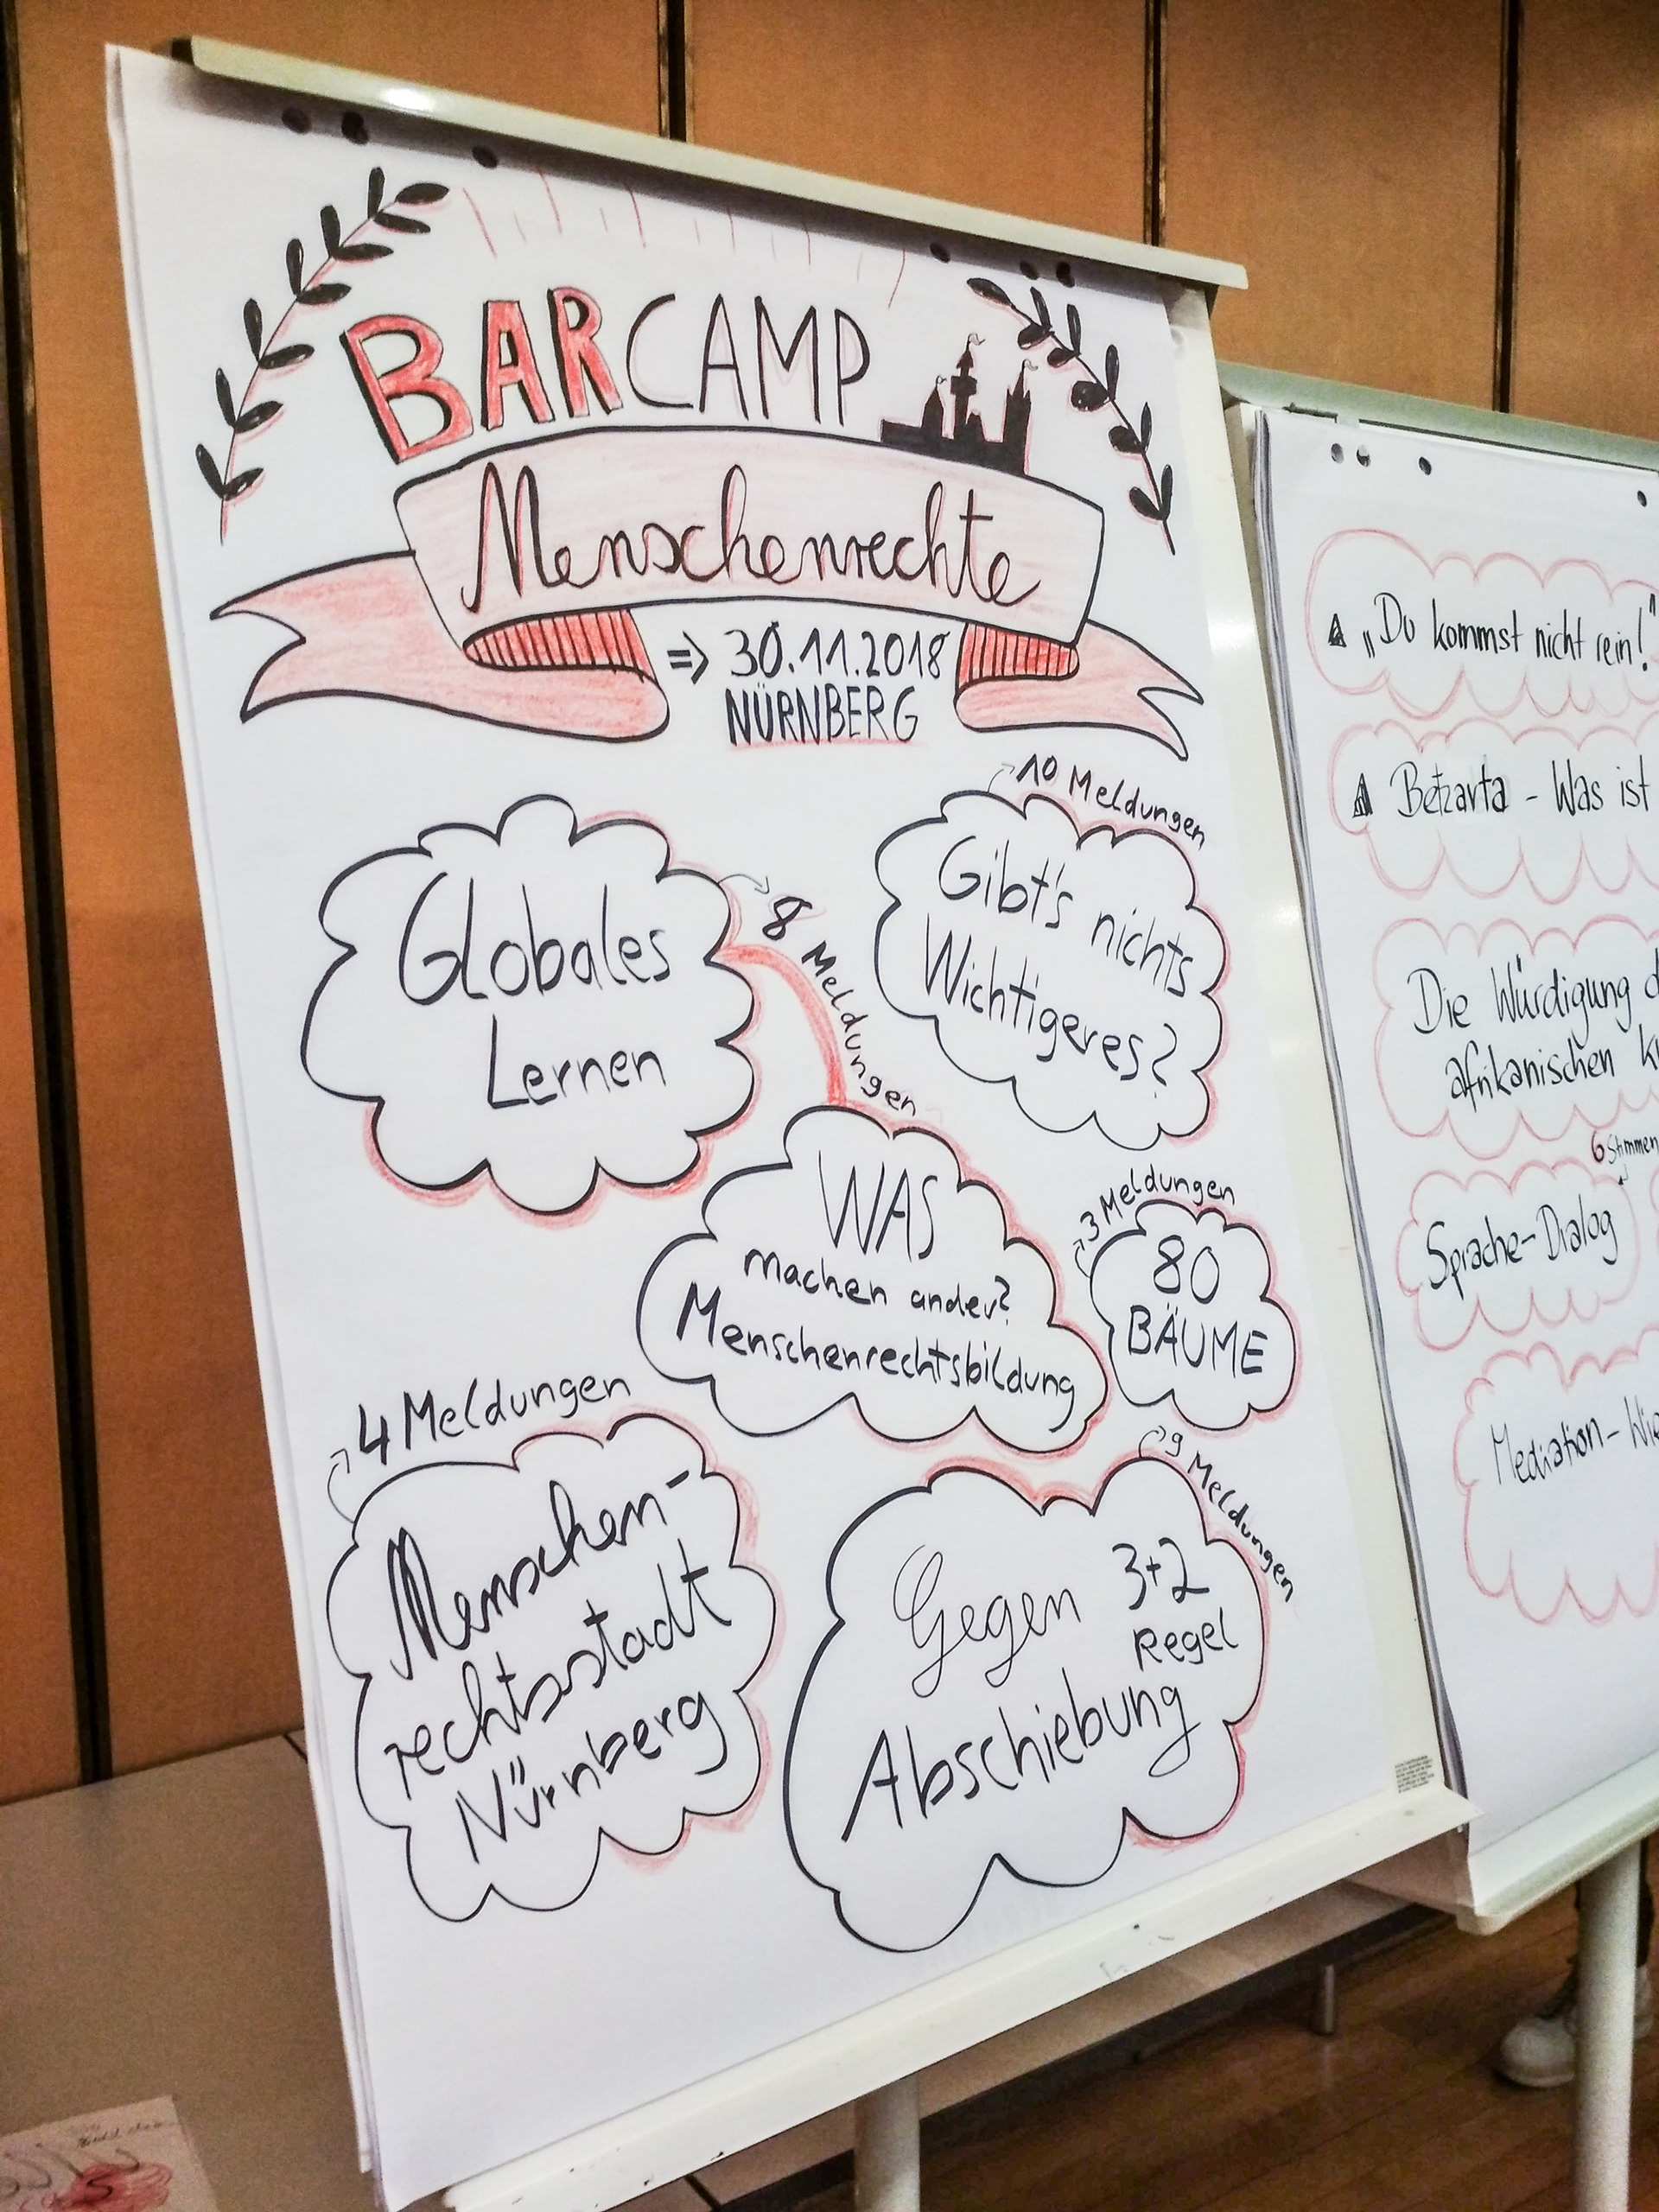 BARCAMP
Menschenrechte
=> 30.11.2018
NÜRNBERG
Globales
Lernen
8 Meldungen
10 Meldungen
Gibt's nichts
Wichtigeres?
WAS
machen ander?
Menschenrechtsbildung
3 Meldungen
80
BÄUME
4 Meldungen
Menschen-
rechtsstadt
Nürnberg
9 Meldungen
Gegen 3+2
Regel
Abschiebung
„Du kommst nicht rein!"
Betzavta - Was ist
Die Würdigung d
afrikanischen
6 Stimmen
Sprache-Dialog
Mediation - Wie